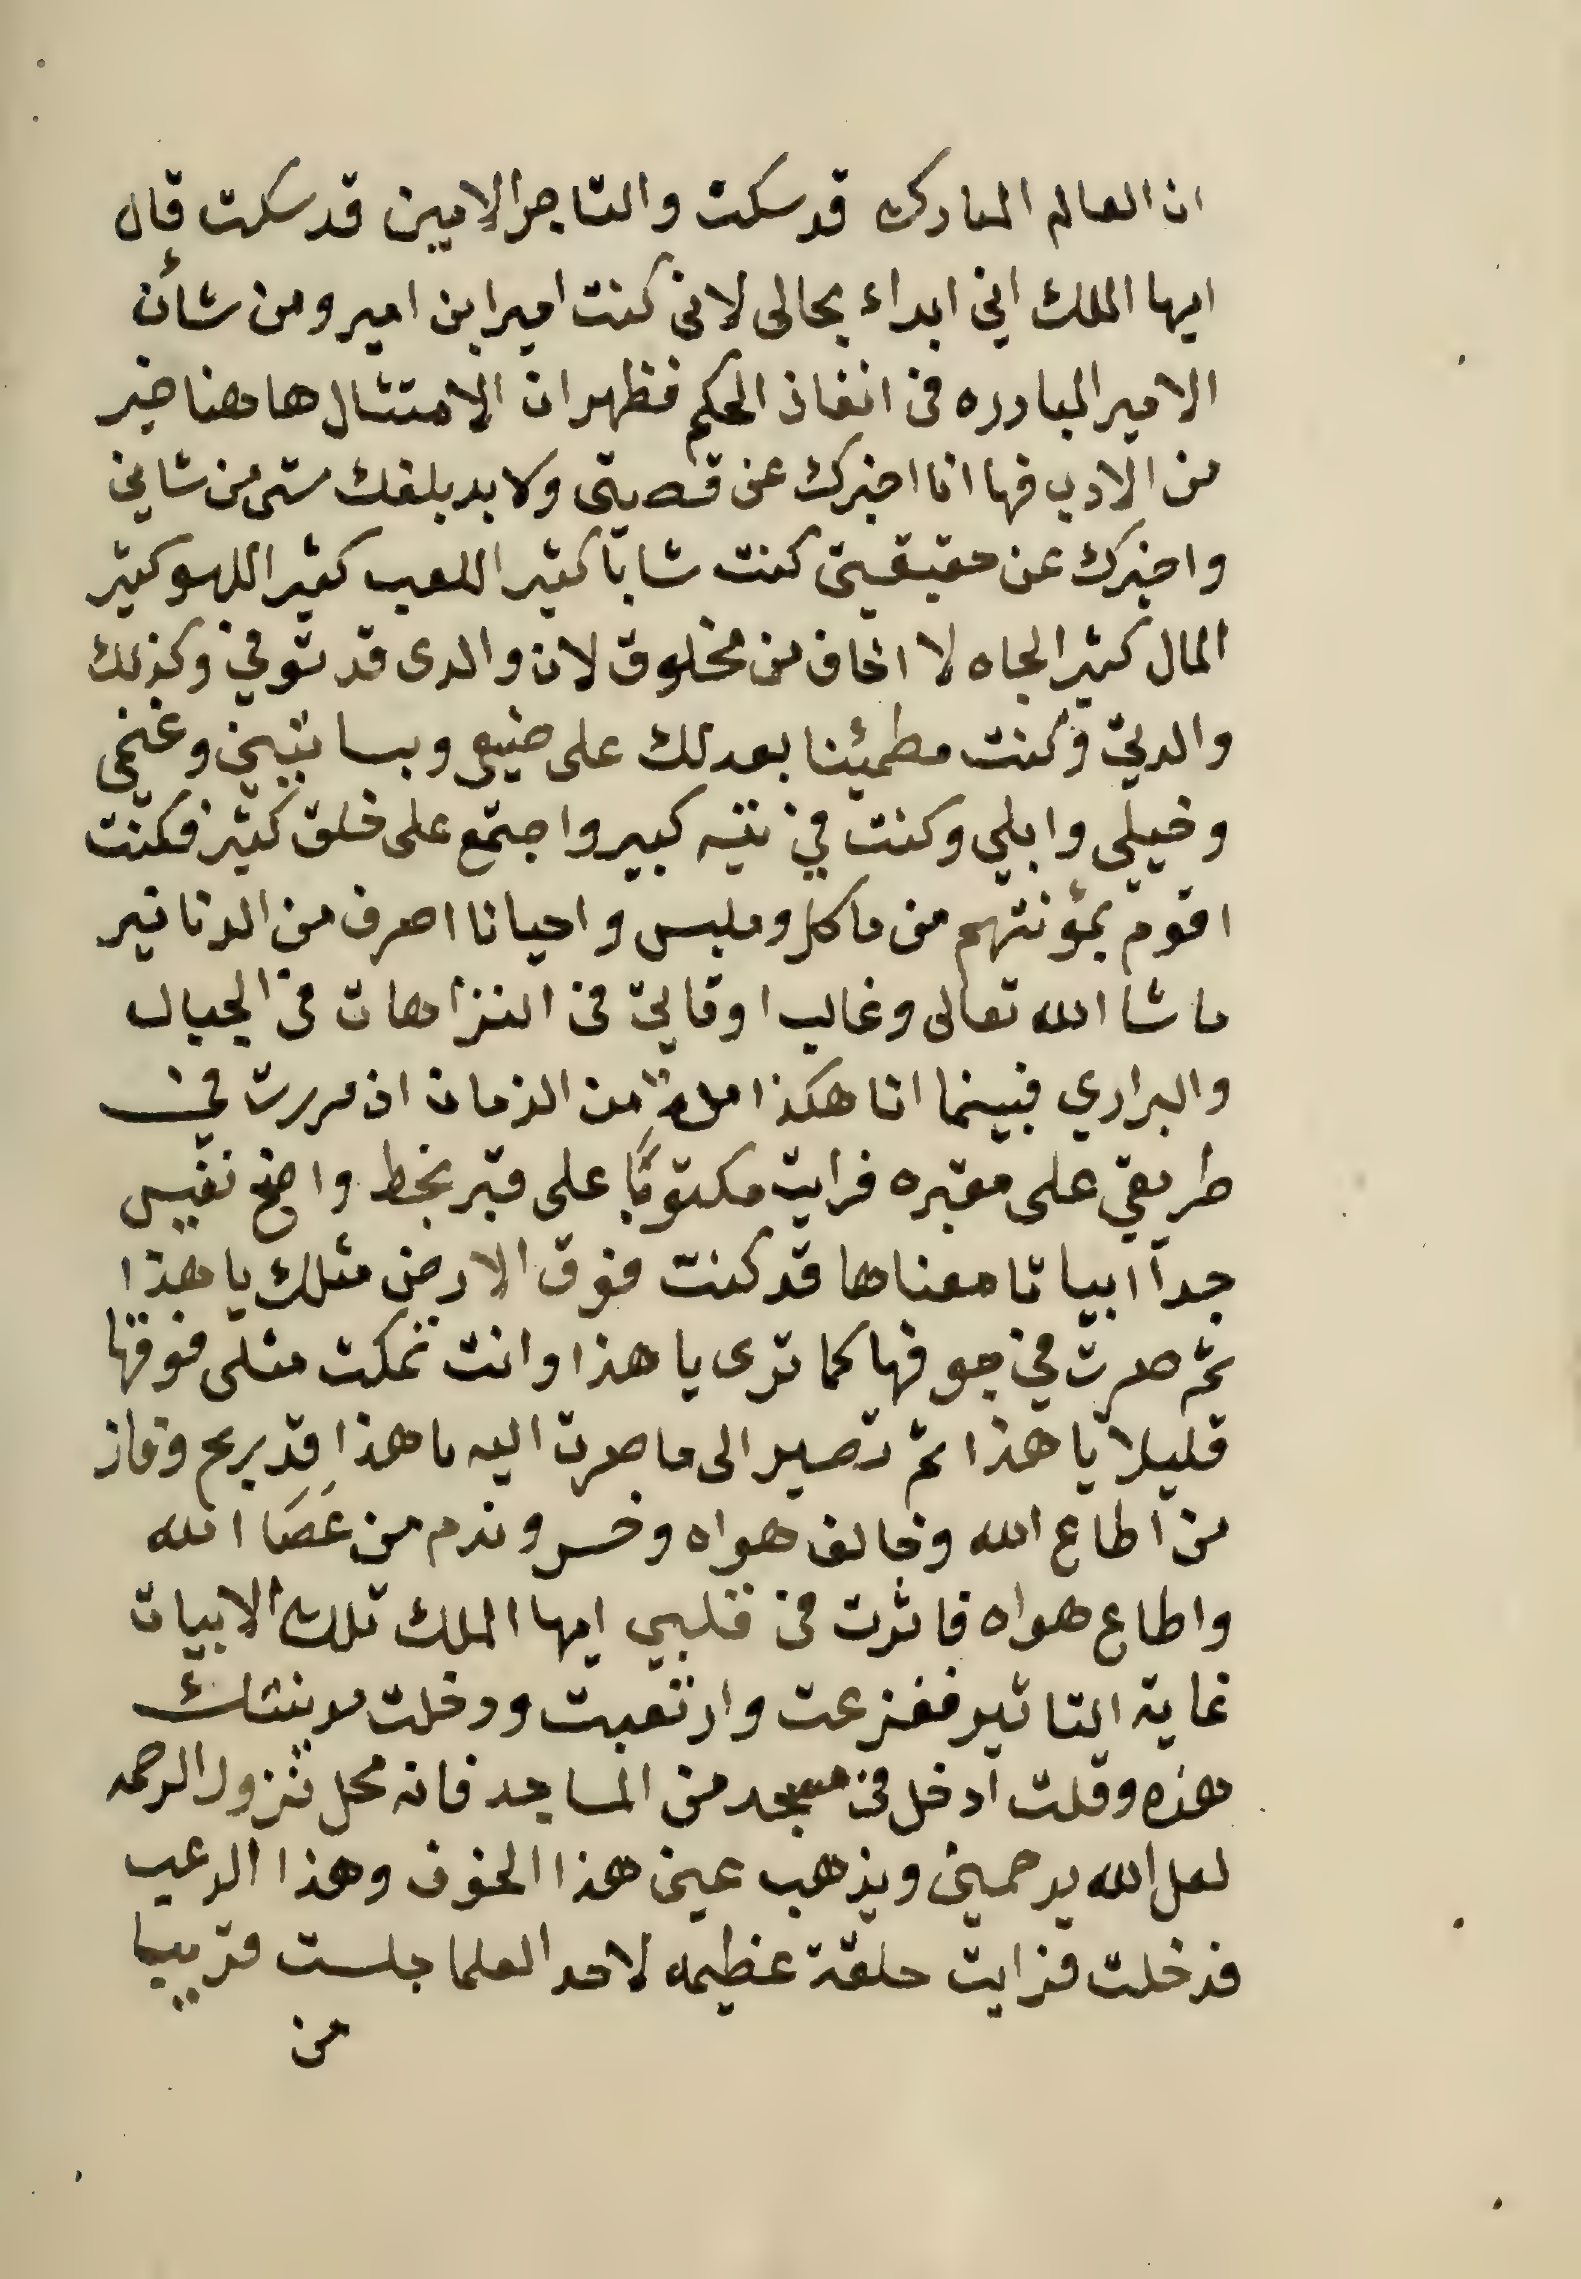 ان العالم المبارك قد سكت والتاجر الامين قد سكت قال
ايها الملك اني ابداء بحالى لانى كنت امير ابن امير ومن شأن
الامير المبادره فى انفاذ الحكم فظهر ان الامتثال هاهنا خير
من الادب فها انا اخبرك عن قصيتى ولا بد بلغك شى من شاني
واخبرك عن حقيقيتى كنت شابا كثير اللعب كثير اللهو كثير
المال كثير الجاه لا اخاف من مخلوق لان والدى قد توفي وكذلك
والدتي وكنت مطمئنا بعد ذلك على ضيعى وبساتيني وغنمي
وخيلي وابلي وكنت في تيه كبير واجتمع على خلق كثير فكنت
اقوم بمؤنتهم من ماكل وملبس واحيانا اصرف من الدنانير
ما شا الله تعالى وغالب اوقاتي فى النزاهات فى الجبال
والبراري فبينما انا هكذا مدة من الزمان اذ مررت في
طريقي على مقبره فرايت مكتوبًا على قبر بخط واضح نفيس
جداً ابياتا معناها قد كنت فوق الارض مثلك يا هذا
ثم صرت في جوفها كما ترى يا هذا وانت تمكت مثلى فوقها
قليلا يا هذا ثم تصير الى ما صرت اليه يا هذا قد ربح وفاز
من اطاع الله وخالف هواه وخسر وندم من عَصَا الله
واطاع هواه فاثرت فى قلبي ايها الملك تلك الابيات
غاية التاثير ففزعت وارتعبت ودخلت مدينتك
هذه وقلت ادخل فى مسجد من المساجد فانه محل نزول الرحمه
لعل الله يرحمنى ويذهب عنى هذا الخوف وهذا الرعب
فدخلت فرايت حلقة عظيمه لاحد العلما جلست قريبا
من